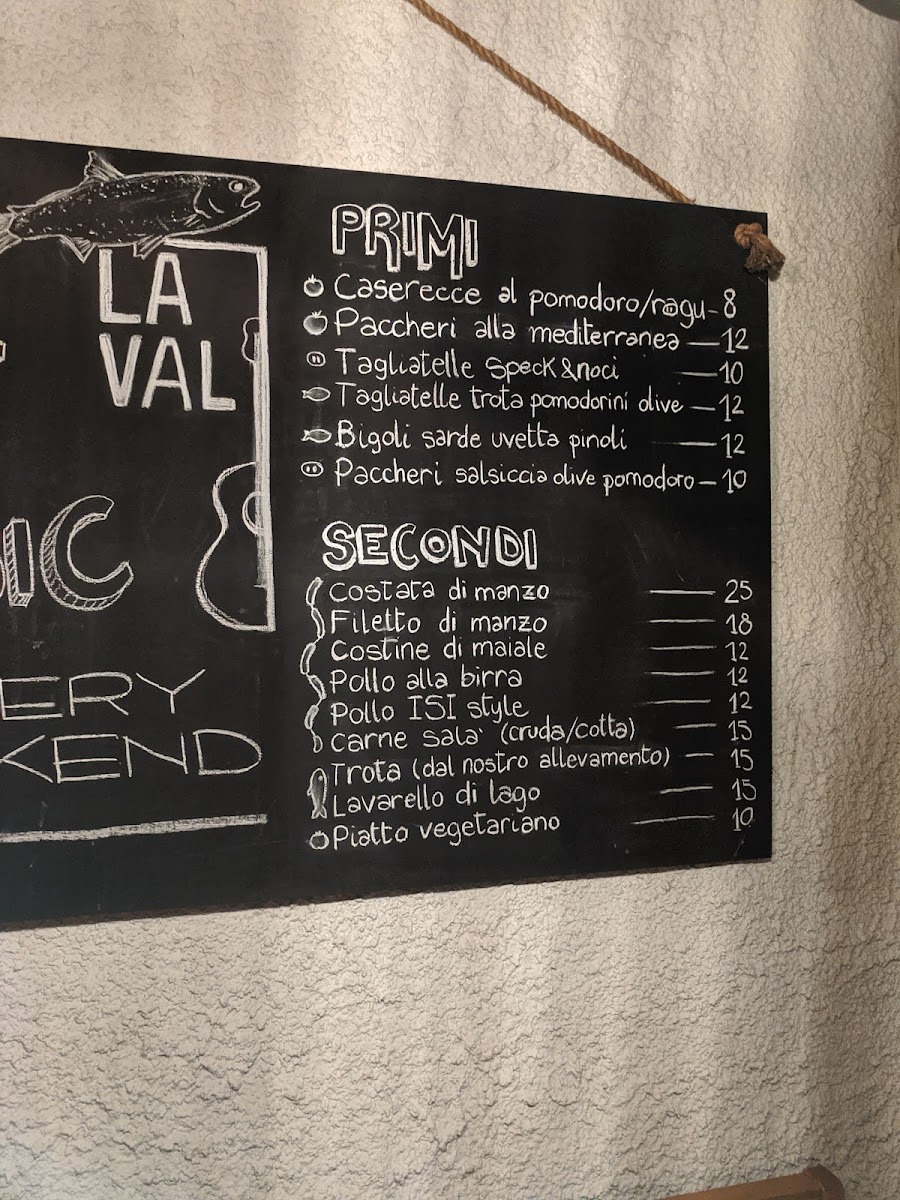 LA
VAL
IC
ERY
KEND
PRIMI
Caserecce al pomodoro/ragu - 8
Paccheri alla mediterranea — 12
Tagliatelle speck & noci — 10
Tagliatelle trota pomodorini olive — 12
Bigoli sarde uvetta pinoli — 12
Paccheri salsiccia olive pomodoro — 10
SECONDI
Costata di manzo — 25
Filetto di manzo — 18
Costine di maiale — 12
Pollo alla birra — 12
Pollo ISI style — 12
Carne sala' (cruda/cotta) — 15
Trota (dal nostro allevamento) — 15
Lavarello di lago — 15
Piatto vegetariano — 10